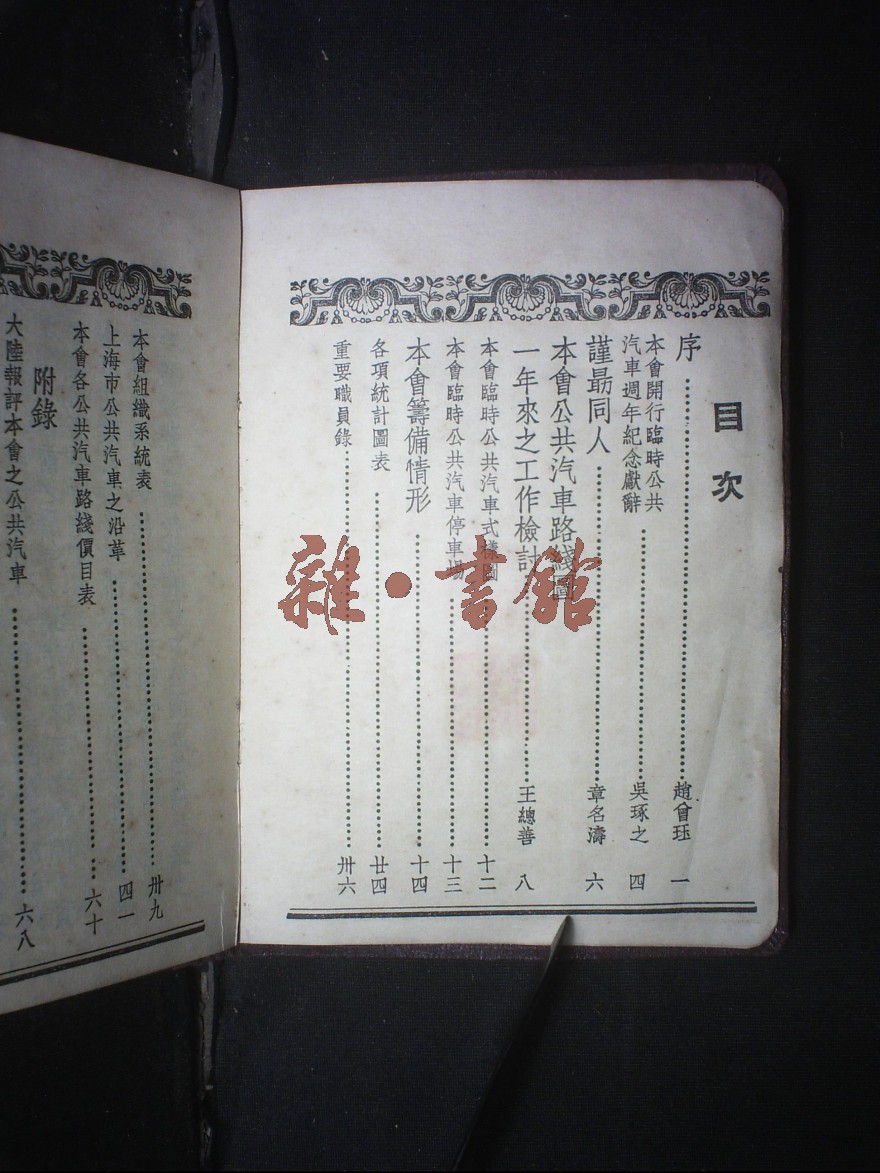 目次
序……趙曾珏 一
本會開行臨時公共
汽車週年紀念獻辭……吳琢之 四
謹勗同人……章名濤 六
本會公共汽車路綫圖
一年來之工作檢討……王總善 八
本會臨時公共汽車式樣圖……十二
本會臨時公共汽車停車場……十三
本會籌備情形……十四
各項統計圖表……廿四
重要職員錄……卅六
本會組織系統表……卅九
上海市公共汽車之沿革……四一
本會各公共汽車路綫價目表……六十
附錄
大陸報評本會之公共汽車……六八
雜·書館